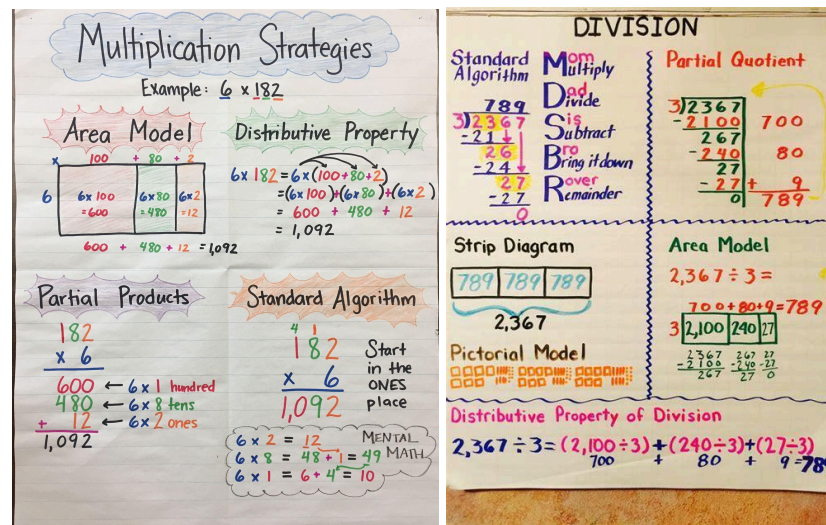 Multiplication Strategies
Example: 6 × 182
Area Model
× 100 + 80 + 2
6 6×100 6×80 6×2
=600 =480 =12
600 + 480 + 12 = 1,092
Distributive Property
6×182 = 6×(100+80+2)
=(6×100)+(6×80)+(6×2)
= 600 + 480 + 12
= 1,092
Partial Products
182
× 6
600 ← 6×1 hundred
480 ← 6×8 tens
+ 12 ← 6×2 ones
1,092
Standard Algorithm
4 1
182
× 6
1,092
Start
in the
ONES
place
6×2 = 12
6×8 = 48+1=49
6×1 = 6+4=10
MENTAL
MATH
DIVISION
Standard
Algorithm
789
3)2367
-21
26
-24
27
-27
0
Mom
Multiply
Dad
Divide
Sis
Subtract
Bro
Bring it down
Rover
Remainder
Partial Quotient
3)2367
-2100 700
267
-240 80
27
-27 + 9
0 789
Strip Diagram
789 789 789
2,367
Pictorial Model
Area Model
2,367÷3=
700+80+9=789
3 2,100 240 27
2367 267 27
-2100 -240 -27
267 27 0
Distributive Property of Division
2,367÷3=(2,100÷3)+(240÷3)+(27÷3)
700 + 80 + 9 =789